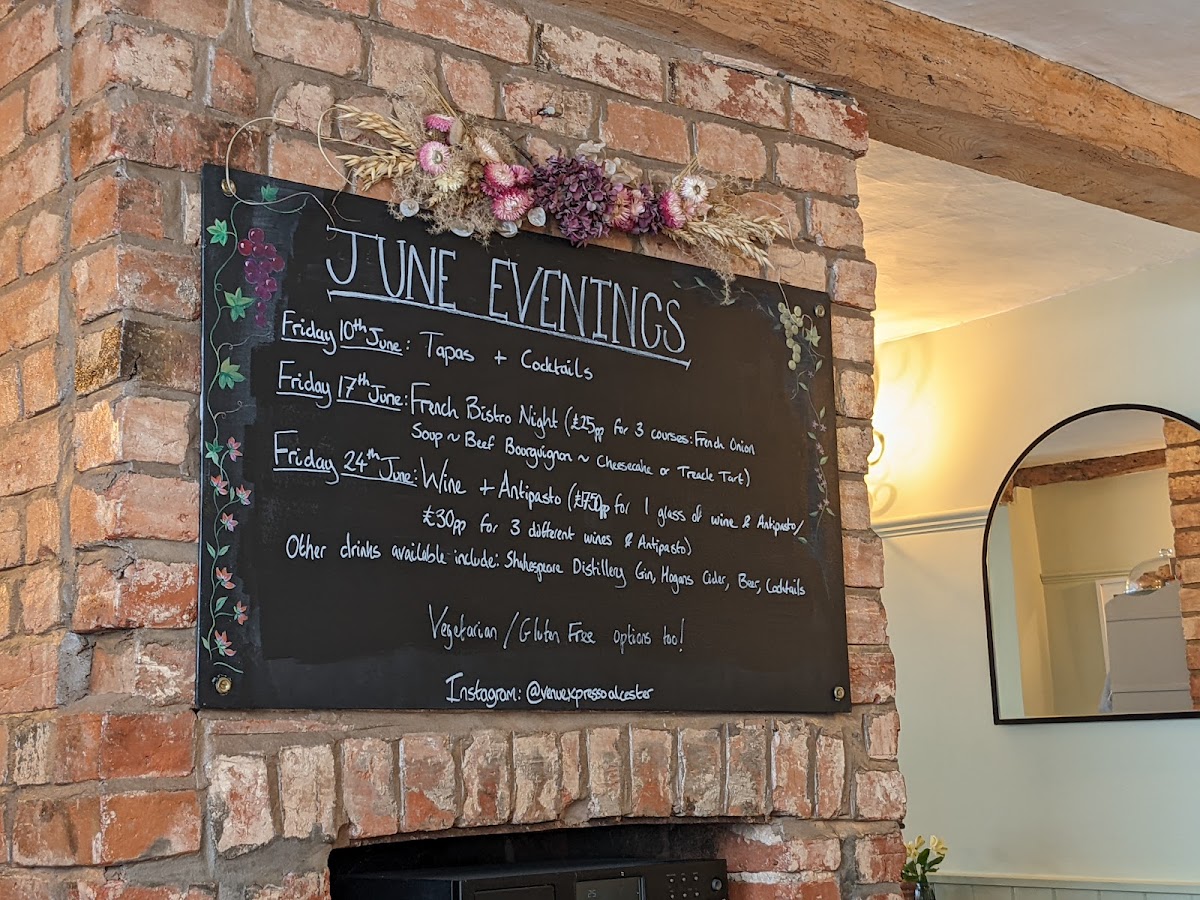 JUNE EVENINGS
Friday 10th June: Tapas + Cocktails
Friday 17th June: French Bistro Night (£25pp for 3 courses: French Onion
Soup ~ Beef Bourguignon ~ Cheesecake or Treacle Tart)
Friday 24th June: Wine + Antipasto (£17.50pp for 1 glass of wine & Antipasto/
£30pp for 3 different wines & Antipasto)
Other drinks available include: Shakespeare Distillery Gin, Hogans Cider, Beer, Cocktails
Vegetarian / Gluten Free options too!
Instagram: @venuexpressoalcester
25